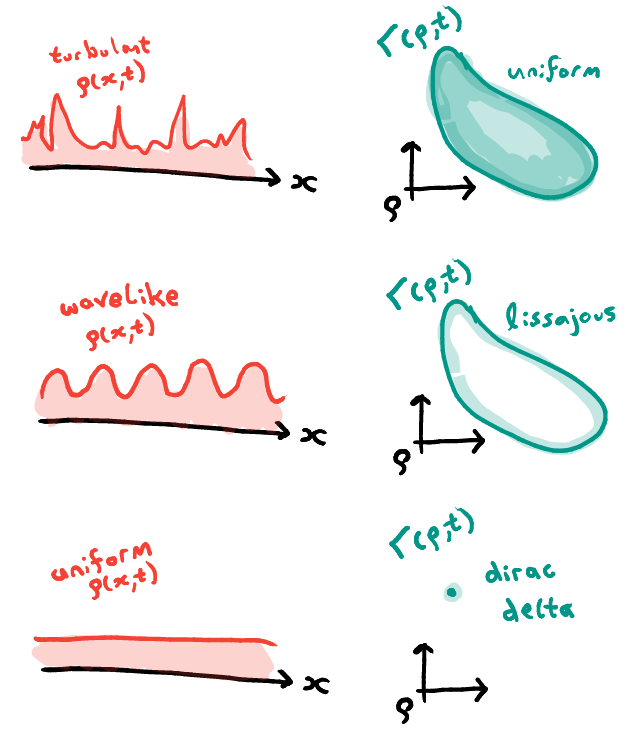 turbulant
ρ(x,t)
x
Γ(ρ,t)
uniform
ρ
wavelike
ρ(x,t)
x
Γ(ρ,t)
lissajous
ρ
uniform
ρ(x,t)
x
Γ(ρ,t)
dirac
delta
ρ